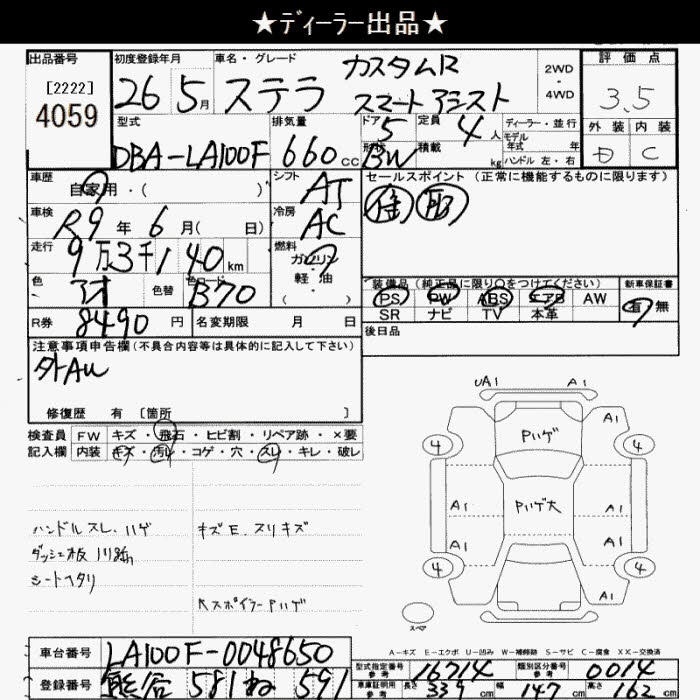 ★ディーラー出品★
出品番号 初度登録年月 車名・グレード 2WD・4WD 評価点
[2222]
4059
26 5月 ステラ カスタムR
スマートアシスト
3.5
型式 排気量 ドア 定員 ディーラー・並行 外装 内装
DBA-LA100F 660cc 5 4人 モデル年式 年
形状 BW 積載 kg ハンドル 左・右 D C
車歴 シフト セールスポイント(正常に機能するものに限ります)
自家用・( ) AT
車検 冷房
R9年6月( 日) AC
走行 燃料
9万3千140km ガソリン・軽油・( )
色 色替 色コード 装備品(純正品に限り○をつけてください) 新車保証書
アオ B70 PS PW ABS エアB AW 有・無
SR ナビ TV 本革
R券 8490円 名変期限 月 日 後日品
注意事項申告欄(不具合内容等は具体的に記入して下さい)
外AW
修復歴 有 [箇所 ]
検査員 FW キズ・飛石・ヒビ割・リペア跡・×要
記入欄 内装 キズ・汚レ・コゲ・穴・スレ・キレ・破レ
ハンドルスレ、ハゲ
シートヘタリ
キズE、スリキズ
Rスポイラー Pハゲ
UA1 A1
Pハゲ A1
4 4
A1 Pハゲ大 A1
A1 A1
4 4
A1
スペア
A-キズ E-エクボ U-凹み W-補修跡 S-サビ C-腐食 XX-交換済
車台番号 LA100F-0048650
型式指定番号 参考 16714 類別区分番号 参考 0014
登録番号 熊谷 581 ね 591
車庫証明用 参考 長さ 339cm 幅 147cm 高さ 162cm